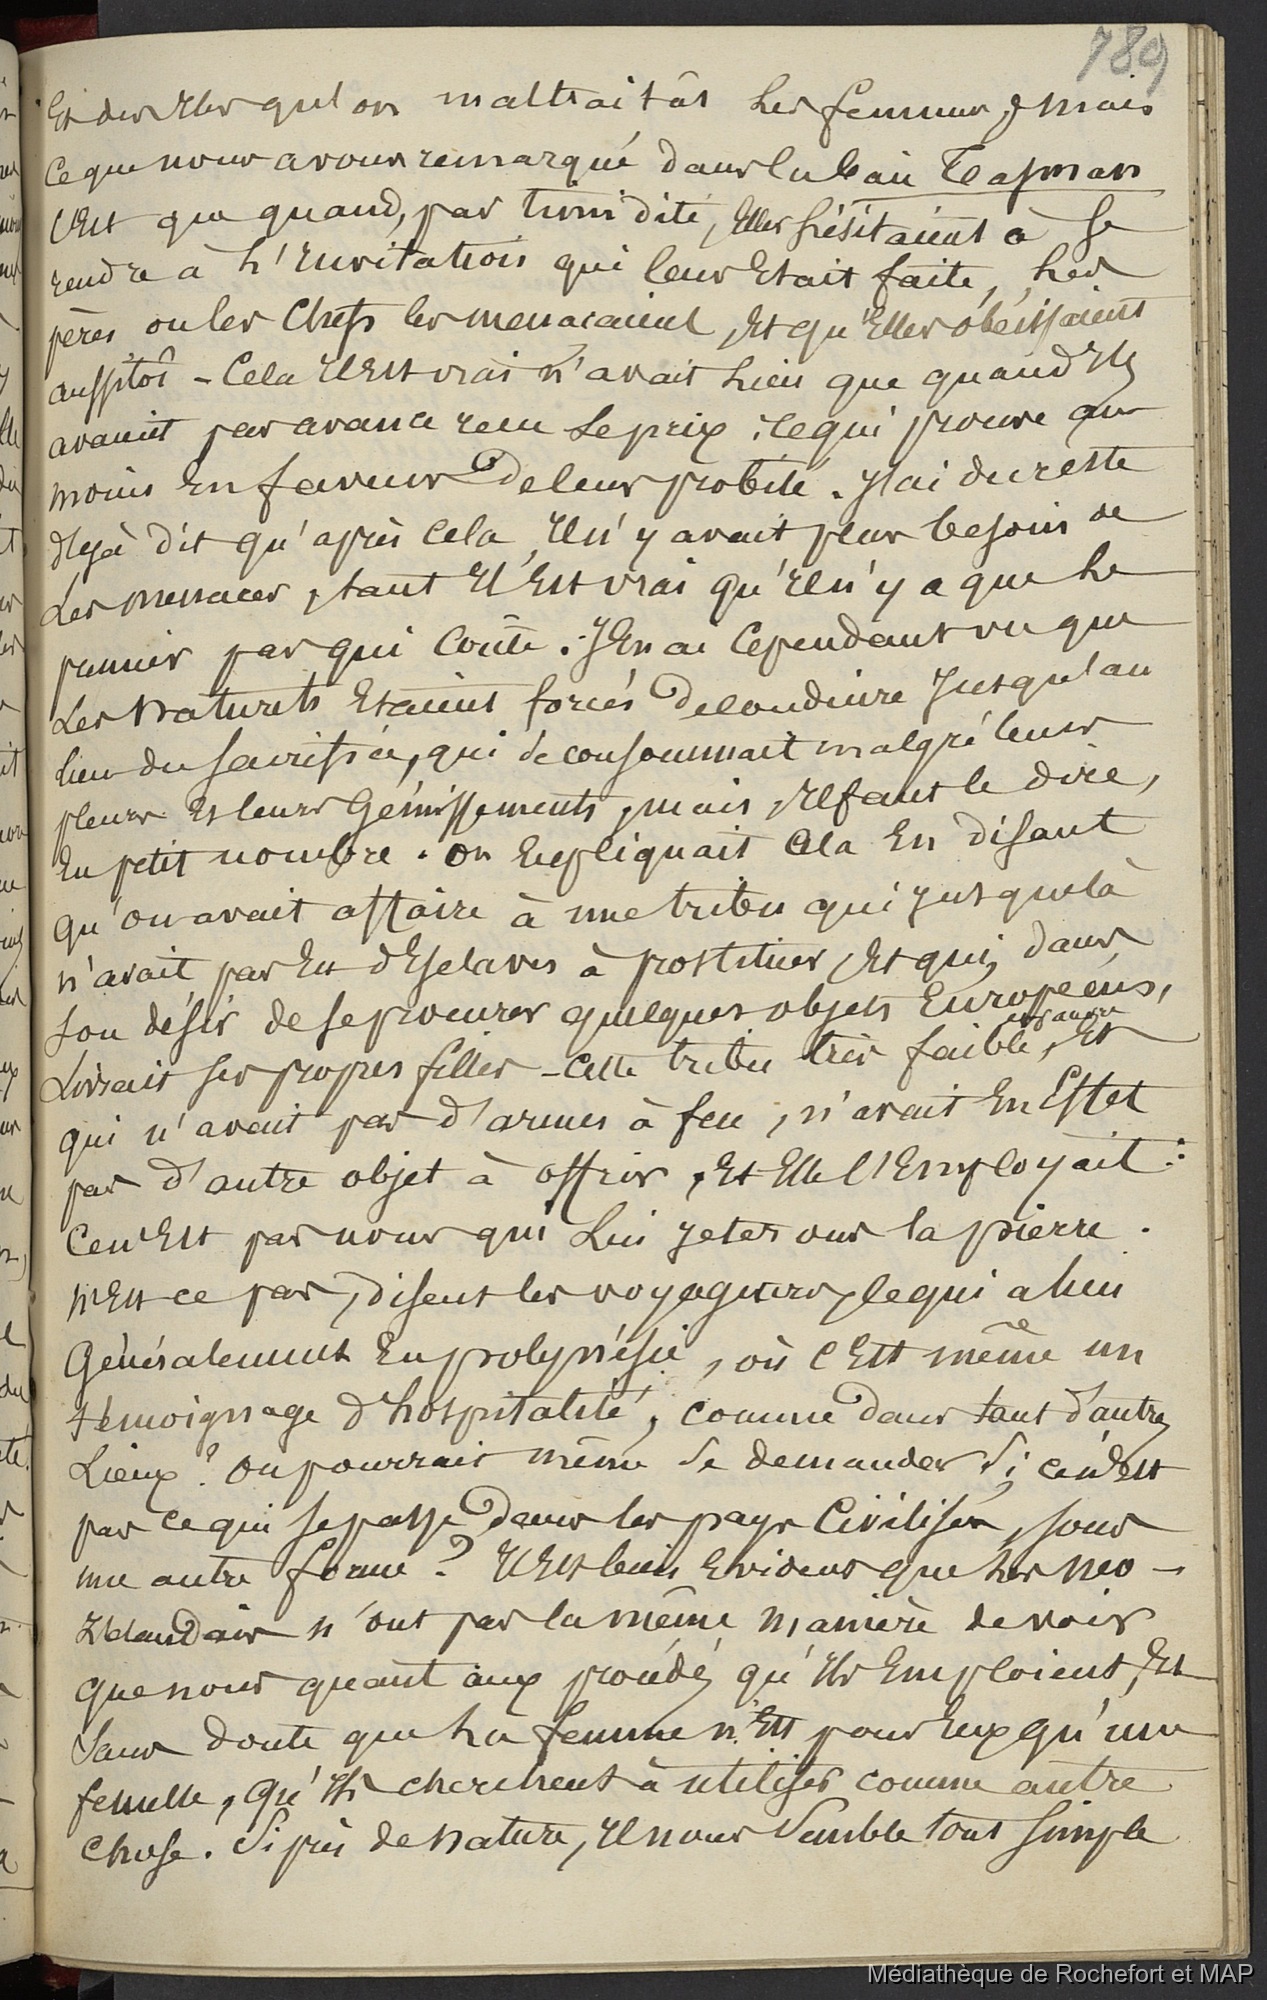 789
Et des Iles qu'on maltraitât les femmes ; mais
ce que nous avons remarqué dans la baie Tasman
C'est que quand, par timidité, Elles hésitaient à se
rendre à l'Invitation qui leur Etait faite, les
pères ou les Chefs les menaçaient, Et qu'Elles obéissaient
aussitôt - Cela Il Est vrai n'avait lieu que quand Ils
avaient par avance reçu le prix ; ce qui prouve au
moins En faveur de leur probité. J'ai du reste
déjà dit qu'après Cela, Il n'y avait plus besoin de
Les menacer, tant Il Est vrai qu'Il n'y a que le
premier pas qui Coûte. J'En ai Cependant vu que
Les Naturels Etaient forcés de conduire Jusqu'au
lieu du Sacrifice, qui se consommait malgré leurs
pleurs Et leurs Gémissements, mais, Il faut le dire,
En petit nombre. On Expliquait Cela En disant
qu'on avait affaire à une tribu qui Jusque là
n'avait pas Eu d'Esclaves à prostituer, Et qui, dans
son désir de se procurer quelques objets Européens,
Livrait ses propres filles - Cette tribu très faible, Et
qui n'avait pas d'armes à feu, n'avait En Effet
pas d'autre objet à offrir, Et Elle l'Employait :
Ce n'Est pas nous qui Lui Jeterons la pierre.
N'Est ce pas, disent les voyageurs, ce qui a lieu
Généralement En polynésie, où C'Est même un
témoignage d'hospitalité, comme dans tant d'autres
Lieux ? On pourrait même se demander Si ce n'Est
pas ce qui se passe dans les pays Civilisés, sous
une autre forme ? Il Est bien Evident que les Néo -
Zélandais n'ont pas la même manière de voir
que nous quant aux procédés qu'Ils Emploient, Et
Sans doute que La femme n'Est pour Eux qu'une
femelle, qu'Ils cherchent à utiliser comme autre
Chose. Si près de Nature, Il nous Semble tout Simple
Médiathèque de Rochefort et MAP